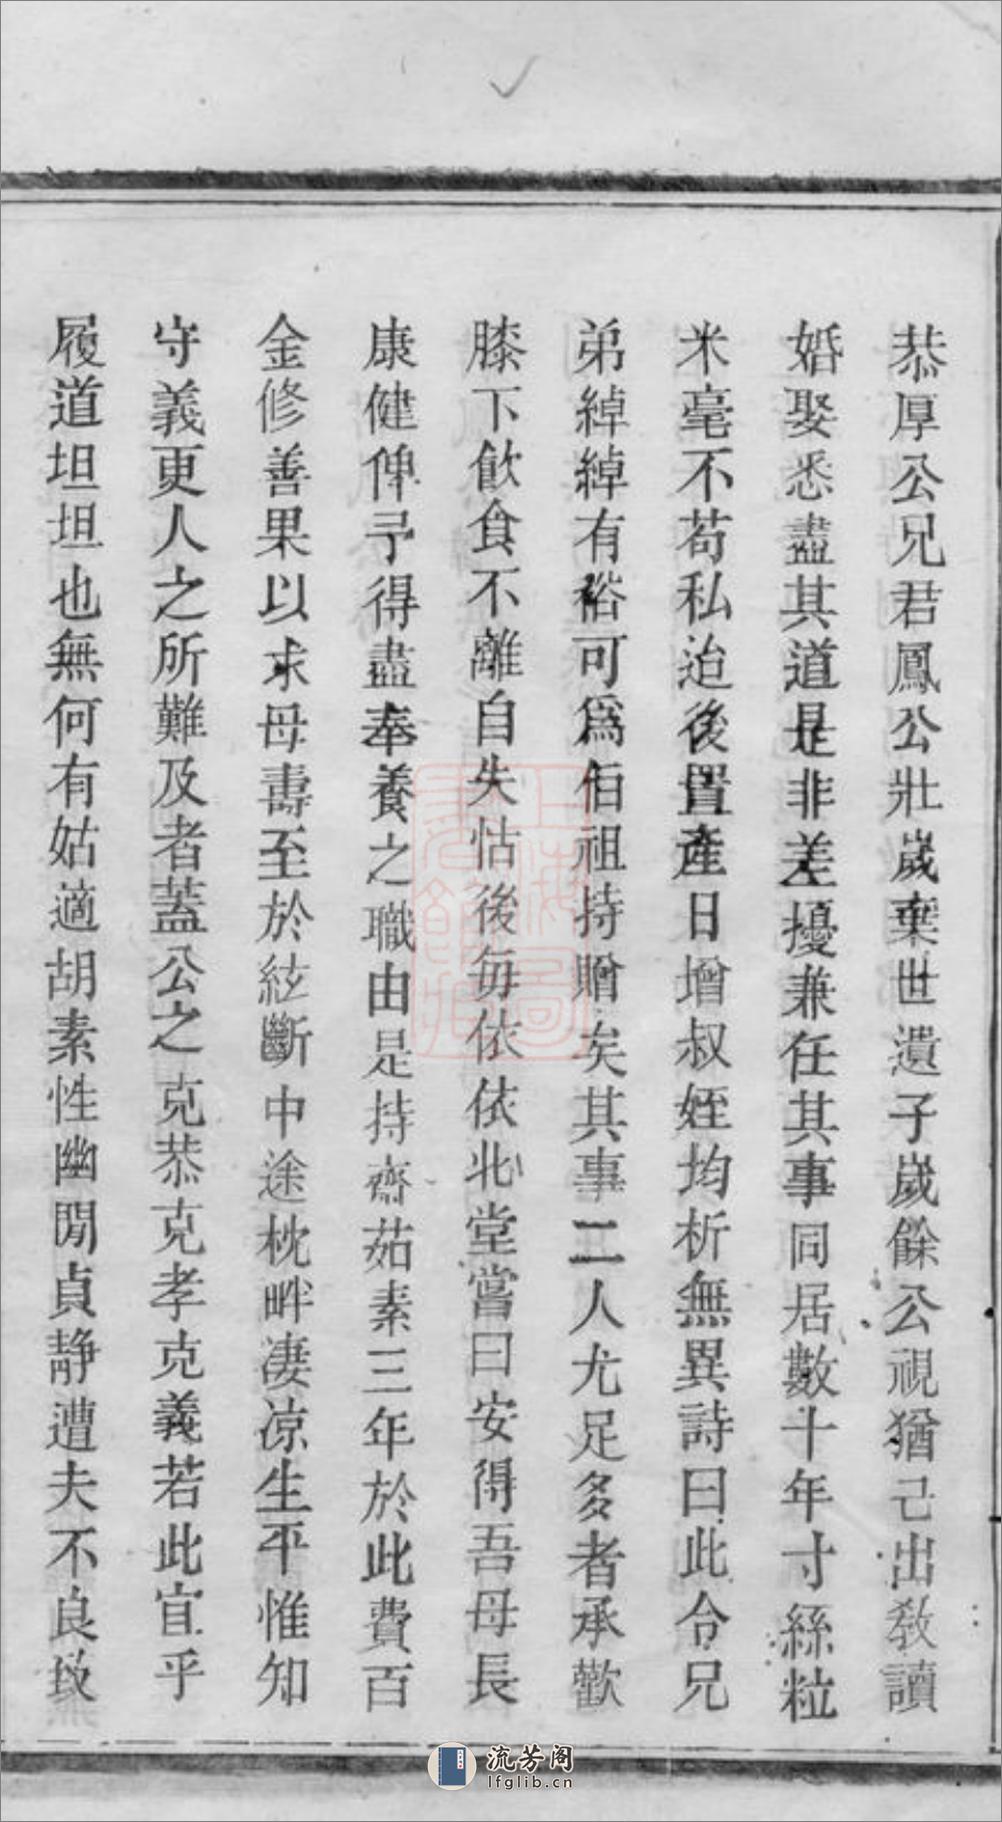 恭厚公兄君鳳公壯歲棄世遺子歲餘公視猶己出教讀
婚娶悉盡其道是非差擾兼任其事同居數十年寸絲粒
米毫不苟私迨後置產日增叔姪均析無異詩曰此令兄
弟綽綽有裕可為伯祖持贈矣其事二人尤足多者承歡
膝下飲食不離自失怙後每依依北堂嘗曰安得吾母長
康健俾予得盡奉養之職由是持齋茹素三年於此費百
金修善果以求母壽至於絃斷中途枕畔淒凉生平惟知
守義更人之所難及者蓋公之克恭克孝克義若此宜乎
履道坦坦也無何有姑適胡素性幽閒貞靜遭夫不良致
上海圖書館藏
流芳阁
lfglib.cn